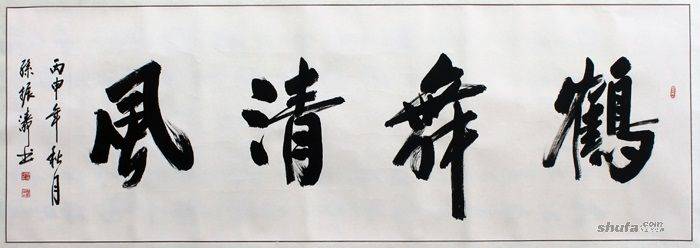 鶴舞清風
丙申年秋月
孫振濤书
shufa.com